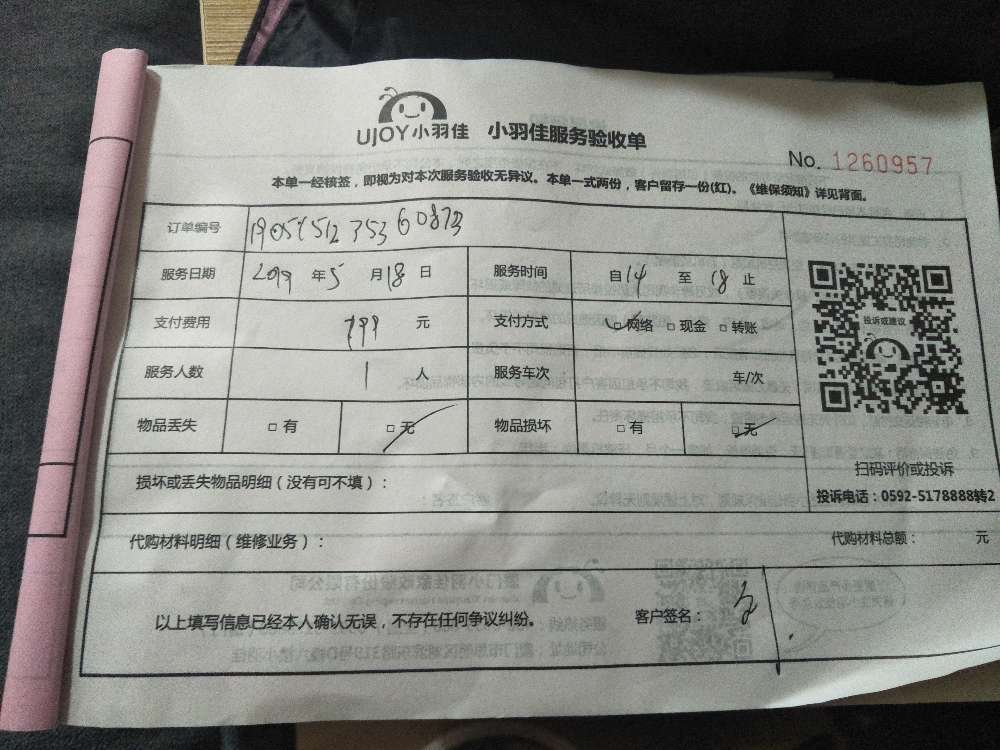 UJOY小羽佳 小羽佳服务验收单
No. 1260957
本单一经核签，即视为对本次服务验收无异议。本单一式两份，客户留存一份(红)。《维保须知》详见背面。
订单编号
服务日期 2019 年 5 月 18 日 服务时间 自 14 至 18 止
支付费用 799 元 支付方式 □网络 □现金 □转账
服务人数 1 人 服务车次 车/次
物品丢失 □有 □无 物品损坏 □有 □无
投诉或建议
扫码评价或投诉
投诉电话：0592-5178888转2
损坏或丢失物品明细（没有可不填）：
代购材料明细（维修业务）： 代购材料总额： 元
以上填写信息已经本人确认无误，不存在任何争议纠纷。 客户签名：